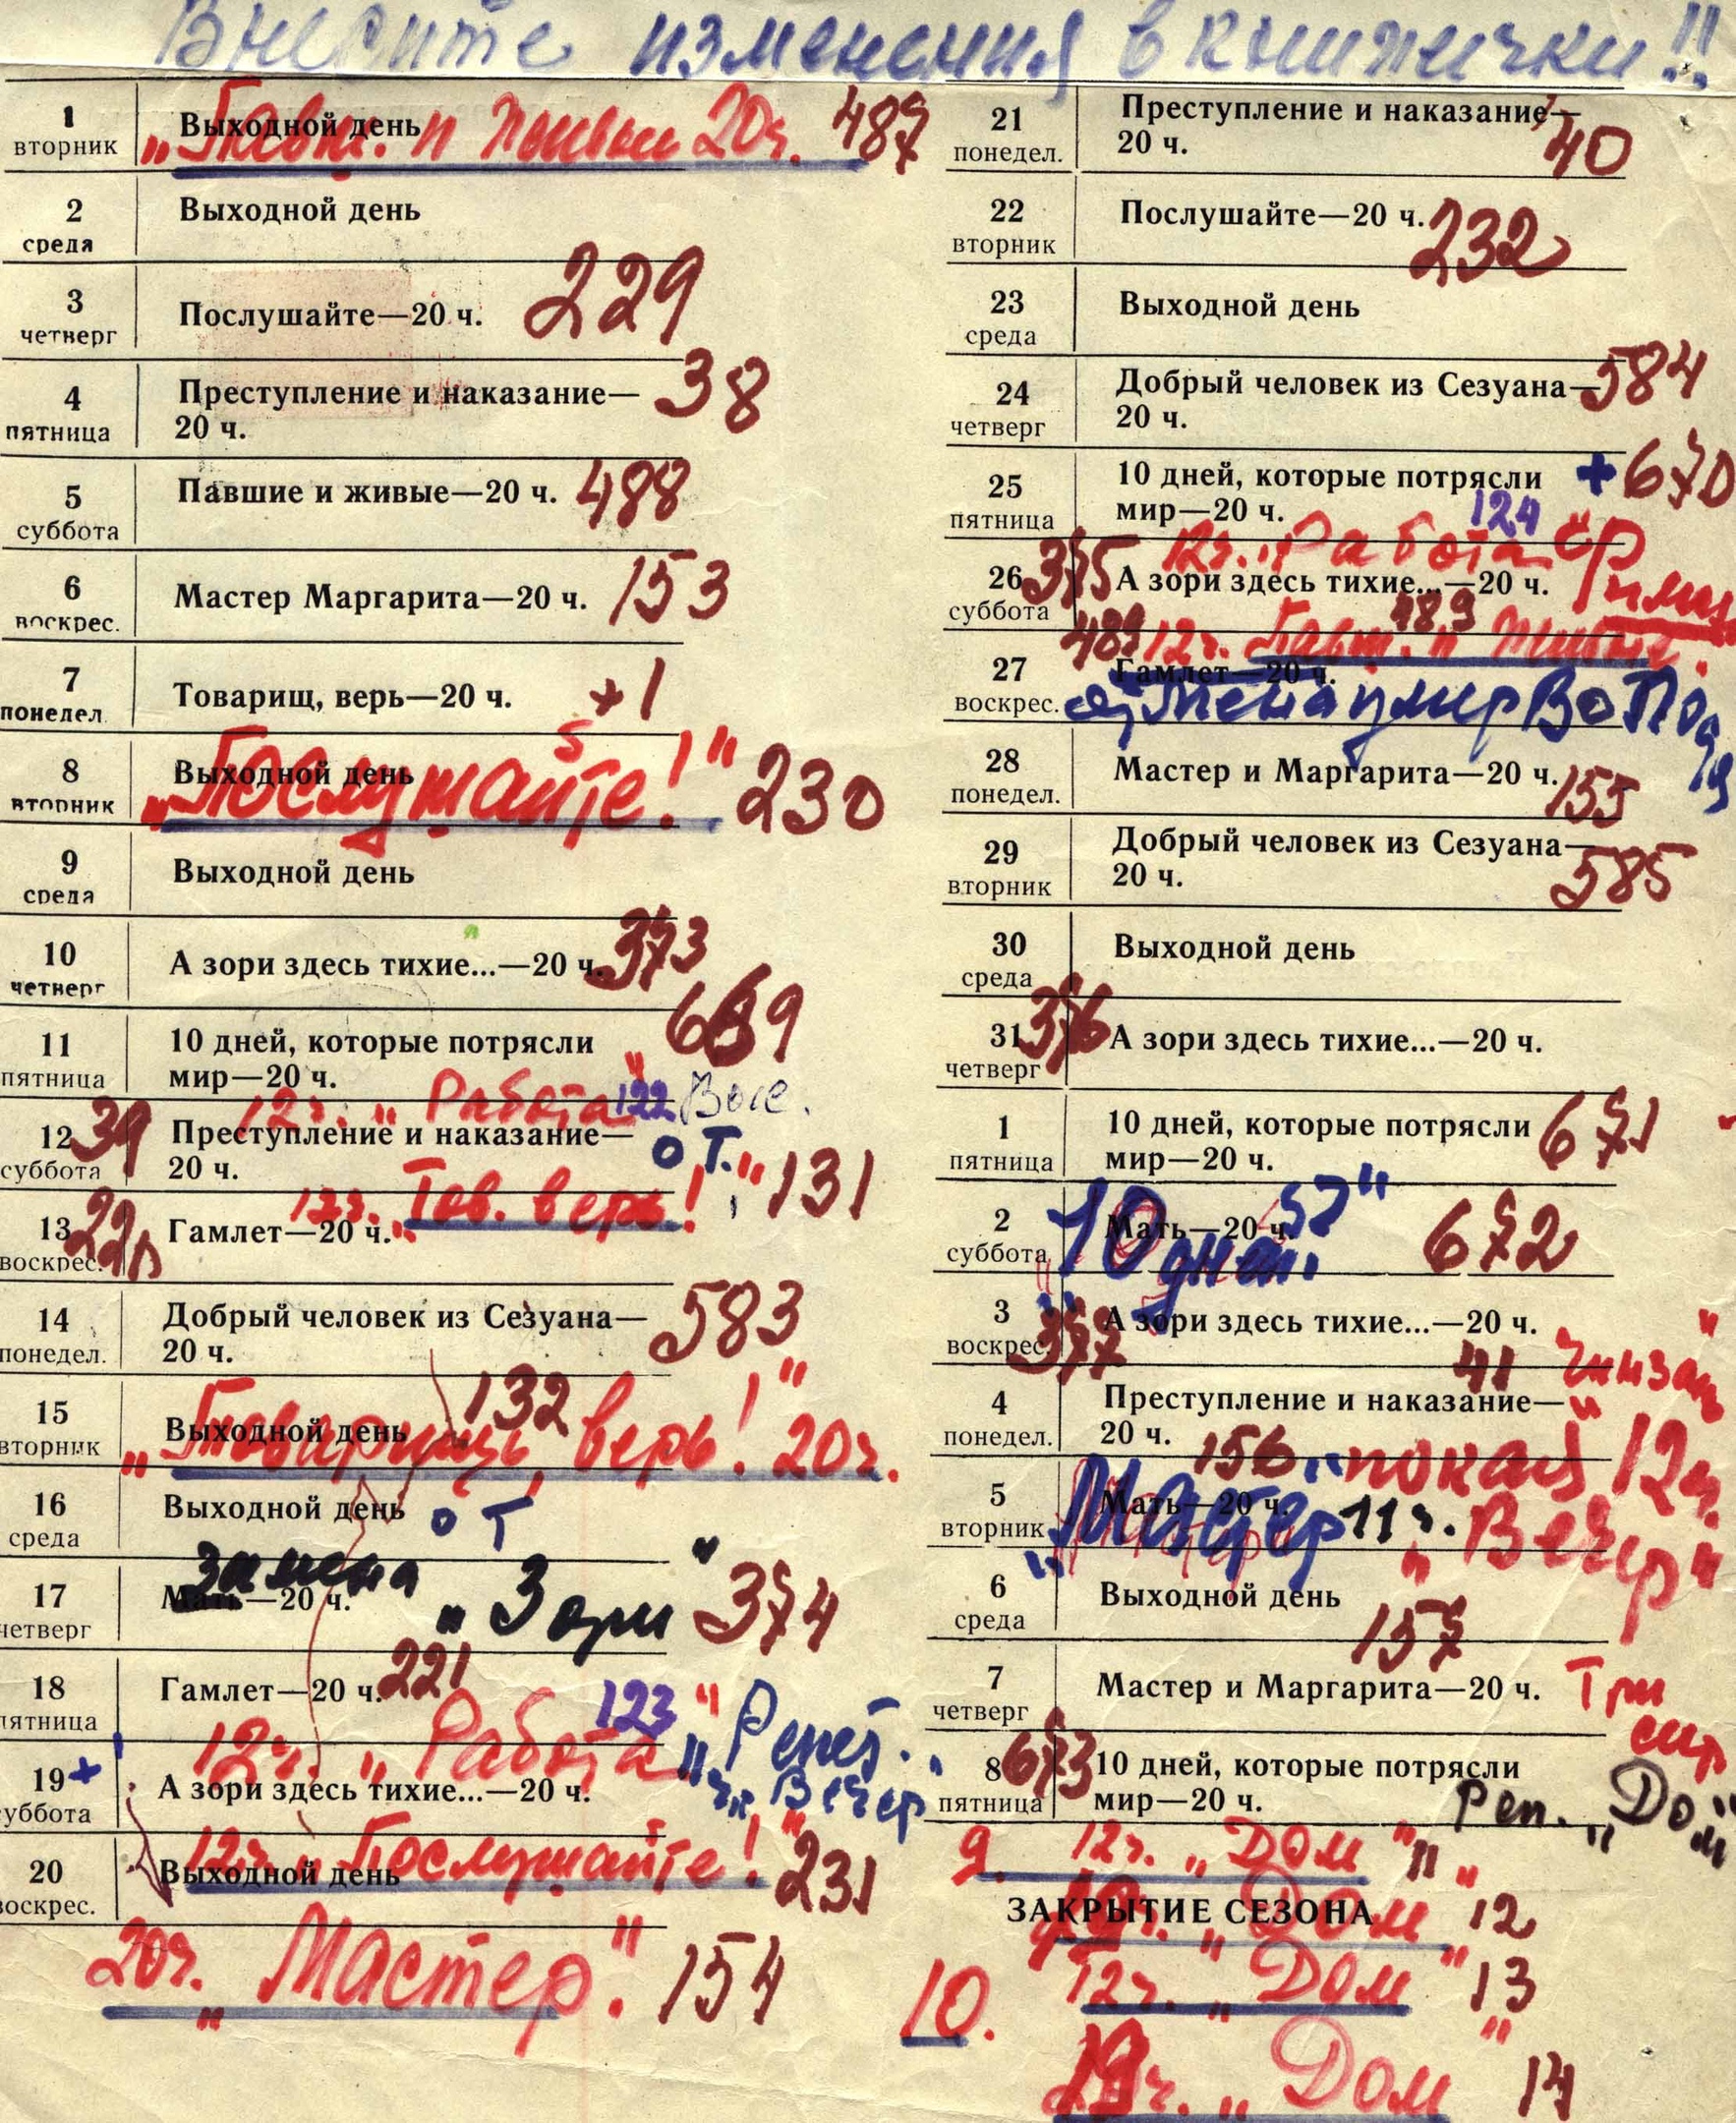 Внесите изменения в книжечки!!
1 вторник Выходной день
„Павш. и живые 20ч. 487
2 среда Выходной день
3 четверг Послушайте—20 ч. 229
4 пятница Преступление и наказание— 38
20 ч.
5 суббота Павшие и живые—20 ч. 488
6 воскрес. Мастер Маргарита—20 ч. 153
7 понедел. Товарищ, верь—20 ч. +1
8 вторник Выходной день
„Послушайте!" 230
9 среда Выходной день
10 четверг А зори здесь тихие...—20 ч. 373
11 пятница 10 дней, которые потрясли 669
мир—20 ч.
12ч. „Работа" 122
12 суббота 39 Преступление и наказание—
20 ч. от.
12ч. „Тов. верь!" 131
13 воскрес. Гамлет—20 ч.
14 понедел. Добрый человек из Сезуана— 583
20 ч.
15 вторник Выходной день 132
„Товарищ, верь! 20ч."
16 среда Выходной день от
замена
17 четверг Мать—20 ч. „Зори" 374
18 пятница Гамлет—20 ч. 221
12ч. „Работа" 123 „Репет.
19+ суббота А зори здесь тихие...—20 ч. Вечер
12ч. „Послушайте!" 231
20 воскрес. Выходной день
20ч. „Мастер" 154
21 понедел. Преступление и наказание— 40
20 ч.
22 вторник Послушайте—20 ч. 232
23 среда Выходной день
24 четверг Добрый человек из Сезуана— 584
20 ч.
25 пятница 10 дней, которые потрясли +670
мир—20 ч. 124
12ч. „Работа"
26 суббота 375 А зори здесь тихие...—20 ч.
489 12ч. Павш. и живые. 489
27 воскрес. Гамлет—20 ч.
28 понедел. Мастер и Маргарита—20 ч. 155
29 вторник Добрый человек из Сезуана— 585
20 ч.
30 среда Выходной день
31 четверг 376 А зори здесь тихие...—20 ч.
1 пятница 10 дней, которые потрясли 671
мир—20 ч.
2 суббота Мать—20 ч. 672
10 дней
3 воскрес. 377 А зори здесь тихие...—20 ч.
4 понедел. Преступление и наказание— 41
20 ч.
156 показ 12ч
5 вторник Мать—20 ч.
„Мастер 11ч. „Вечер"
6 среда Выходной день
157
7 четверг Мастер и Маргарита—20 ч. Три
сестр
8 пятница 673 10 дней, которые потрясли
мир—20 ч. Реп. „Дом"
9. 12ч. „Дом" 11
ЗАКРЫТИЕ СЕЗОНА
„Дом" 12
10. 12ч. „Дом" 13
„Дом" 14